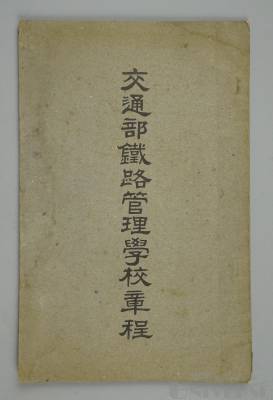 交通部鐵路管理學校章程